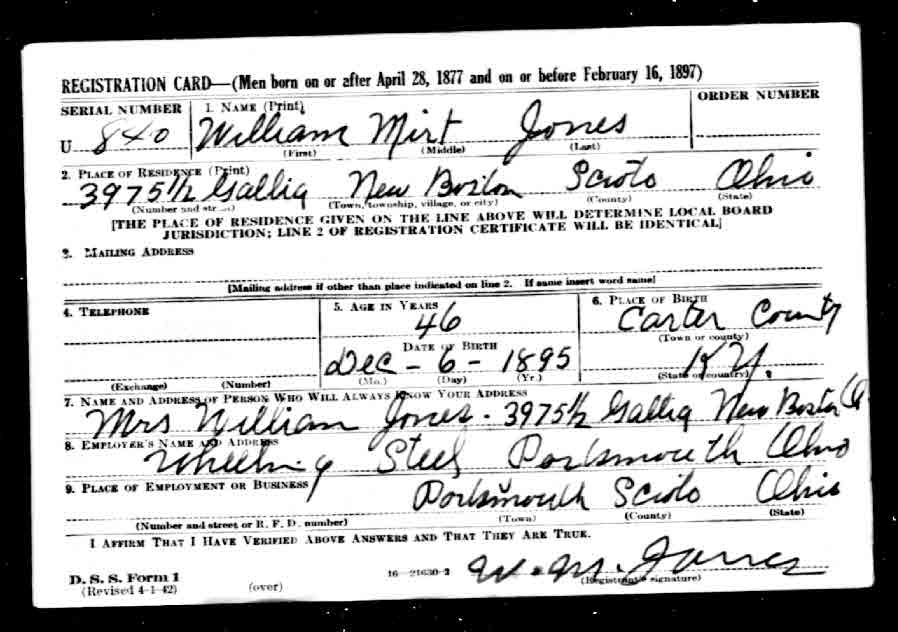 REGISTRATION CARD—(Men born on or after April 28, 1877 and on or before February 16, 1897)
SERIAL NUMBER 1. NAME (Print) ORDER NUMBER
U 840 William Mirt Jones
(First) (Middle) (Last)
2. PLACE OF RESIDENCE (Print)
3975½ Gallia New Boston Scioto Ohio
(Number and str (Town, township, village, or city) (County) (State)
[THE PLACE OF RESIDENCE GIVEN ON THE LINE ABOVE WILL DETERMINE LOCAL BOARD
JURISDICTION; LINE 2 OF REGISTRATION CERTIFICATE WILL BE IDENTICAL]
3. MAILING ADDRESS
[Mailing address if other than place indicated on line 2. If same insert word same]
4. TELEPHONE 5. AGE IN YEARS 6. PLACE OF BIRTH
46 Carter County
DATE OF BIRTH (Town or county)
Dec - 6 - 1895 KY.
(Exchange) (Number) (Mo.) (Day) (Yr.) (State or country)
7. NAME AND ADDRESS OF PERSON WHO WILL ALWAYS KNOW YOUR ADDRESS
Mrs William Jones - 3975½ Gallia New Boston O
8. EMPLOYER'S NAME AND ADDRESS
Wheeling Steel Portsmouth Ohio
9. PLACE OF EMPLOYMENT OR BUSINESS
Portsmouth Scioto Ohio
(Number and street or R. F. D. number) (Town) (County) (State)
I AFFIRM THAT I HAVE VERIFIED ABOVE ANSWERS AND THAT THEY ARE TRUE.
D. S. S. Form 1 16—21630-2 W. M. Jones
(Revised 4-1-42) (over) (Registrant's signature)